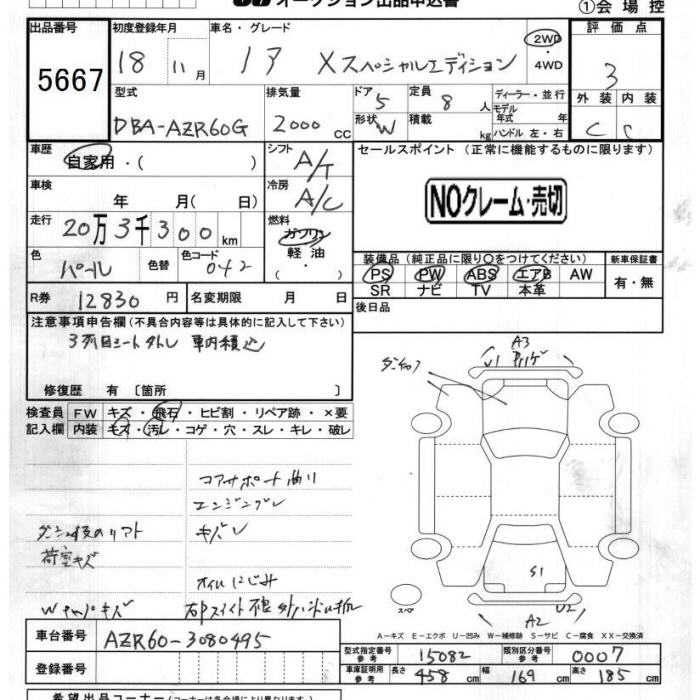 オークション出品申込書
①会場控
出品番号 初度登録年月 車名・グレード 評価点
5667 18 11月 ノア Xスペシャルエディション 2WD・4WD 3
型式 排気量 ドア 5 定員 8人 ディーラー・並行 外装 内装
DBA-AZR60G 2000cc 形状 W 積載 kg モデル年式 年 ハンドル 左・右 C C
車歴 自家用・( ) シフト A/T セールスポイント (正常に機能するものに限ります)
車検 年 月( 日) 冷房 A/C
NOクレーム・売切
走行 20万3千300km 燃料 ガソリン・軽油・
装備品(純正品に限り○をつけてください) 新車保証書
色 パール 色替 色コード 042 PS PW ABS エアB AW 有・無
SR ナビ TV 本革
R券 12830円 名変期限 月 日 後日品
注意事項申告欄(不具合内容等は具体的に記入して下さい)
3列目シート外し 車内積込
修復歴 有〔箇所 〕
検査員 FW キズ・飛石・ヒビ割・リペア跡・×要
記入欄 内装 キズ・汚レ・コゲ・穴・スレ・キレ・破レ
A3
U1
コアサポート曲り
エンジンブレ
キズレ
荷室キズ
オイルにじみ
S1
U2
A2
スペア
A-キズ E-エクボ U-凹み W-補修跡 S-サビ C-腐食 XX-交換済
車台番号 AZR60-3080495
型式指定番号参考 15082 類別区分番号参考 0007
登録番号 車庫証明用参考 長さ 458cm 幅 169cm 高さ 185cm
希望出品コーナー(コーナーは各会場により異なります)